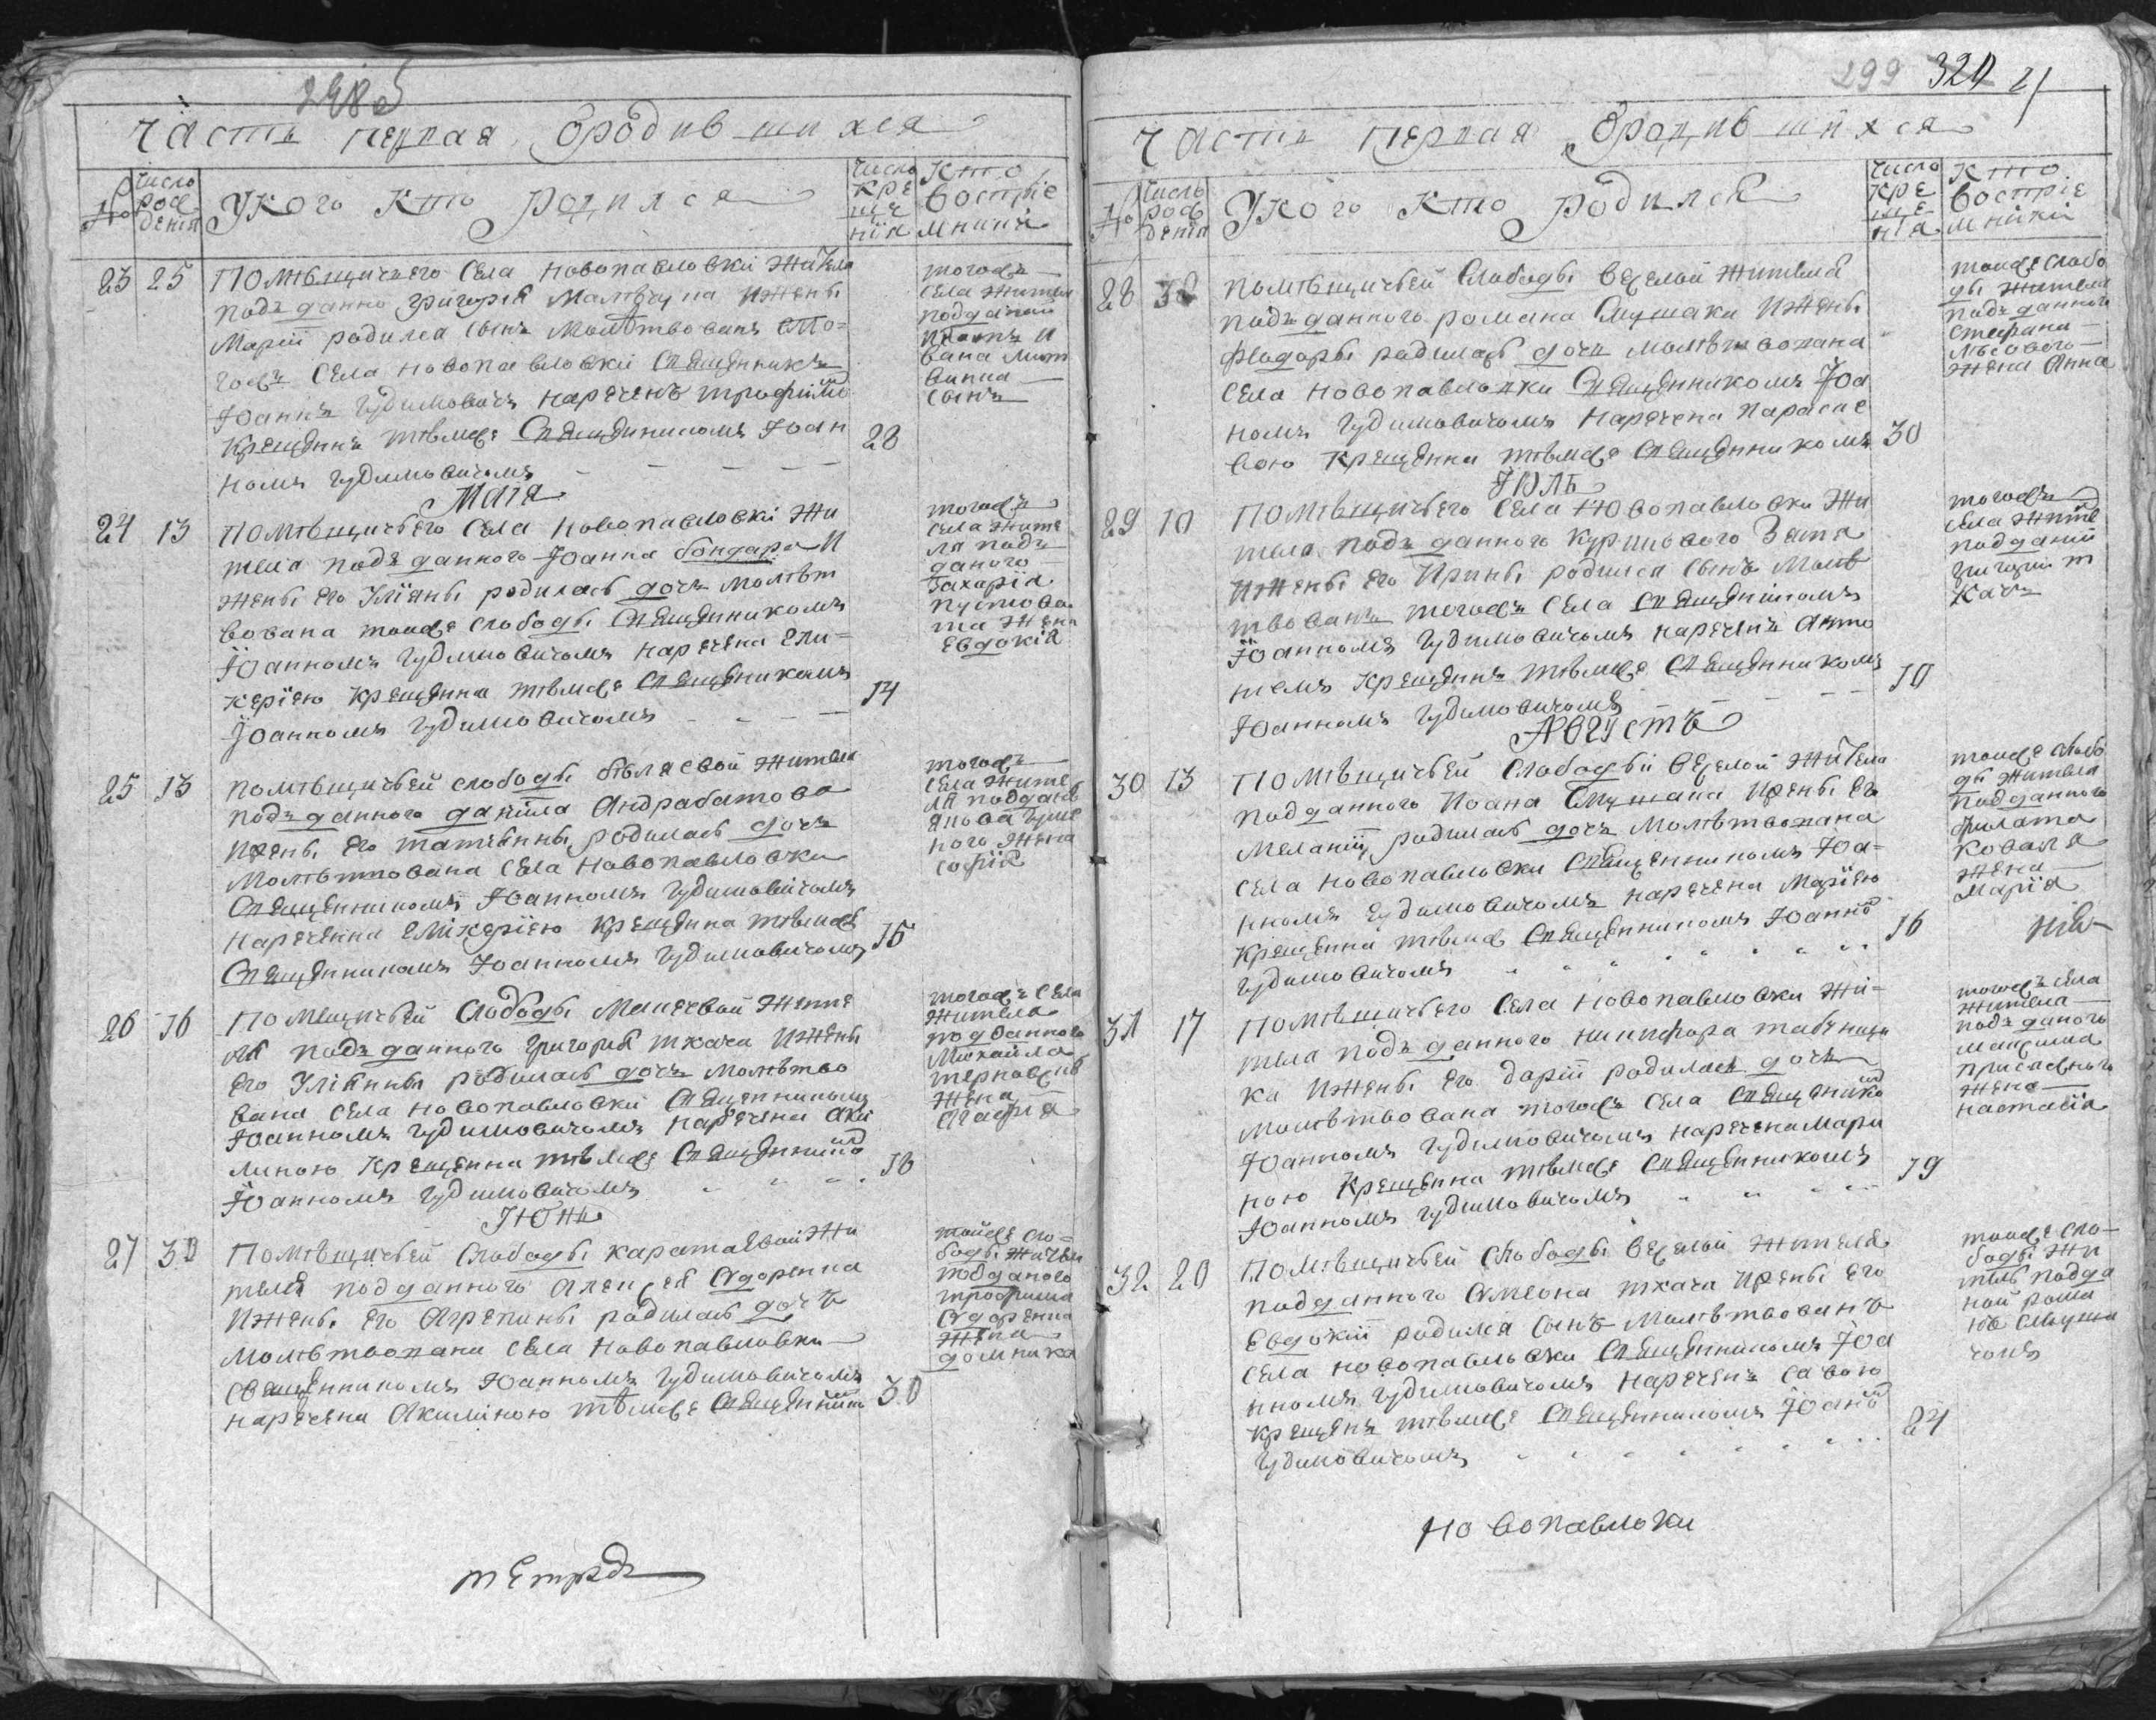 Часть первая Ородившихся
№
Число
рож
денія
Укого Кто родился
Число
кре
ще
нія
Кто
воспріе
мники
23 25 Помѣщичьего Села Новопавловки жителя
подъ данно Григорія
Маріи родился сынъ Молѣтвованъ Ото=
гожъ Села Новопавловки Священникъ
Іоаннъ Гудимовичъ нареченъ Трофимо
Крещенъ тѣмже Священникомъ Іоан
номъ Гудимовичомъ 28
тогожъ
Села жителя
подданій
сынъ
Маія
24 13 Помѣщичьего Села Новопавловки жи
теля подъ данного Іоанна бондаря И
жены Его Уліяны родилась дочь Молѣт
вована тоиже слободы Священникомъ
Іоанномъ Гудимовичомъ наречена Гли=
керіею Крещенна тѣмже Священикомъ
Іоанномъ Гудимовичомъ 14
тогожъ
Села жите
ля подъ
даного
Захарія
Пустова
та жена
Евдокія
25 13 Помѣщичьей слободы бѣляевой жителя
подъ данного даніила Андрабатово
Ижены Его татіянны родилась дочь
Молѣтвована Села Новопавловки
Священникомъ Іоанномъ Гудимовичомъ
Нареченна Гликеріею Крещенна тѣмже
Священникомъ Іоанномъ Гудимовичомъ 15
тогожъ
Села жите
ля поддане
ного жена
Софія
26 16 Помещичьей Слободы Манечвой жите
ля подъ данного Григорія ткача Ижены
Его Уліянны родилась дочь Молѣтво
вана Села Новопавловки Священникомъ
Іоанномъ Гудимовичомъ Наречена Аки
линою Крещенна тѣмже Священнико
Іоанномъ Гудимовичомъ 18
тогожъ Села
жителя
подданного
Михайла
жена
Агафія
Іюнь
27 30 Помѣщичьей Слободы каратаевой жи
теля подданного Алексея Сидоренка
Ижены Его Агрепины родилась дочь
Молѣтвована Села Новопавловки
Священникомъ Іоанномъ Гудимовичомъ
наречена Акилиною тѣмже Священником 30
тойже сло=
боды жителя
подданого
трофима
Сидоренка
жена
домника
тетрадь
299 320 21
Часть первая Ородившихся
№
Число
рож
денія
Укого Кто родился
Число
кре
ще
нія
Кто
воспріе
мники
28 30 Помѣщичьей Слободы Веселой жителя
подъ данного романа Слушака Ижены
Феодоры родилась дочь Молѣтвована
Села Новопавловки Священникомъ Іоа
номъ Гудимовичомъ Наречена Параске
вою Крещенна тѣмже Священникомъ 30
тоиже слобо
ды жителя
подъ данного
Стефана
лѣсового
жена Анна
Іюль
29 10 Помѣщичьего Села Новопавловки жи
теля подъ данного Зятя
Ижены Его Ирины родился сынъ Молѣ
твованъ тогожъ Села Священикомъ
Іоанномъ Гудимовичомъ нареченъ Анто
ніемъ Крещенъ тѣмже Священникомъ
Іоанномъ Гудимовичомъ 10
тогожъ
Села жите
подданій
Григорій т
качъ
Августъ
30 13 Помѣщичьей Слободы Веселой жителя
подданного Иоана Слушака Ижены Его
Меланіи родилась дочь Молѣтвована
Села Новопавловки Священникомъ Іоа=
нномъ Гудимовичомъ наречена Маріею
Крещенна тѣмже Священникомъ Іоанно
Гудимовичомъ 16
тоиже слобо
ды жителя
подданного
филата
коваля
жена
Марія
31 17 Помѣщичьего Села Новопавловки жи=
теля подъ данного никифора
ка Ижены Его даріи родилася дочь
Молѣтвована тогожъ Села Священико
Іоанномъ Гудимовичомъ наречена Мари
ною Крещенна тѣмже Священникомъ
Іоанномъ Гудимовичомъ 19
тогожъ села
жителя
подъ даного
максима
жена
настасія
32 20 Помѣщичьей Слободы Веселой жителя
подданного Симеона ткача Ижены Его
Евдокіи родился сынъ Молѣтвованъ
Села Новопавловки Священникомъ Іоа
нномъ Гудимовичомъ нареченъ Савою
Крещенъ тѣмже Священникомъ Іоанно
Гудимовичомъ 21
тоиже сло
боды жи
тель подда
ной рома
нъ Слуша
Новопавловки